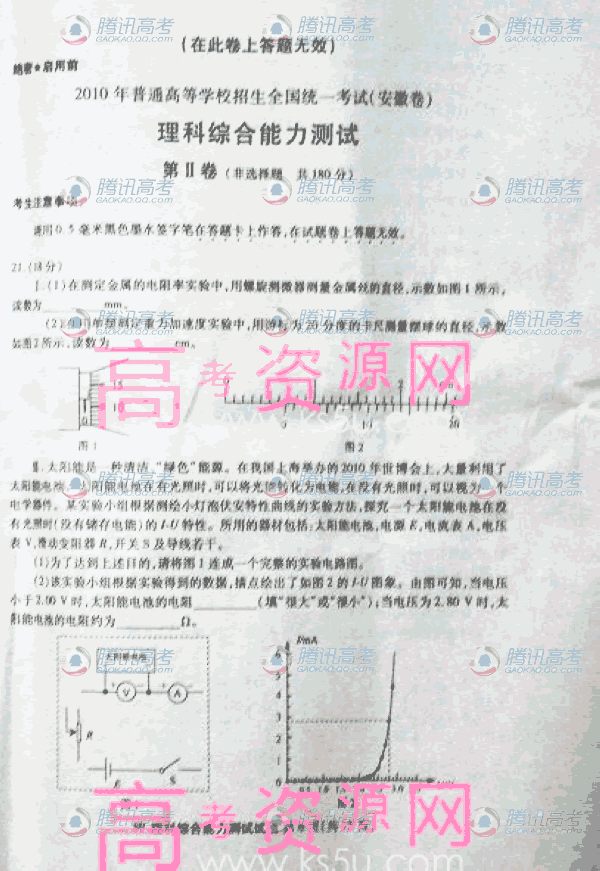 (在此卷上答题无效)
绝密★启用前
2010年普通高等学校招生全国统一考试(安徽卷)
理科综合能力测试
第Ⅱ卷(非选择题 共180分)
考生注意事项:
请用0.5毫米黑色墨水签字笔在答题卡上作答,在试题卷上答题无效。
21.(18分)
Ⅰ.(1)在测定金属的电阻率实验中,用螺旋测微器测量金属丝的直径,示数如图1所示,
读数为________mm。
(2)在用单摆测定重力加速度实验中,用游标为20分度的卡尺测量摆球的直径,示数
如图2所示,读数为________cm。
15
10
0
2
0
10
20
图1
图2
Ⅱ.太阳能是一种清洁、“绿色”能源。在我国上海举办的2010年世博会上,大量利用了
太阳能电池。太阳能电池在有光照时,可以将光能转化为电能,在没有光照时,可以视为一个
电学器件。某实验小组根据测绘小灯泡伏安特性曲线的实验方法,探究一个太阳能电池在没
有光照时(没有储存电能)的I-U特性。所用的器材包括:太阳能电池,电源E,电流表A,电压
表V,滑动变阻器R,开关S及导线若干。
(1)为了达到上述目的,请将图1连成一个完整的实验电路图。
(2)该实验小组根据实验得到的数据,描点绘出了如图2的I-U图象。由图可知,当电压
小于2.00V时,太阳能电池的电阻________(填“很大”或“很小”);当电压为2.80V时,太
阳能电池的电阻约为________Ω。
太阳能电池
V
A
R
E
S
I/mA
6
5
4
3
2
1
0
3.0
理科综合能力测试试
腾讯高考
GAOKAO.QQ.COM
高考资源网
www.ks5u.com